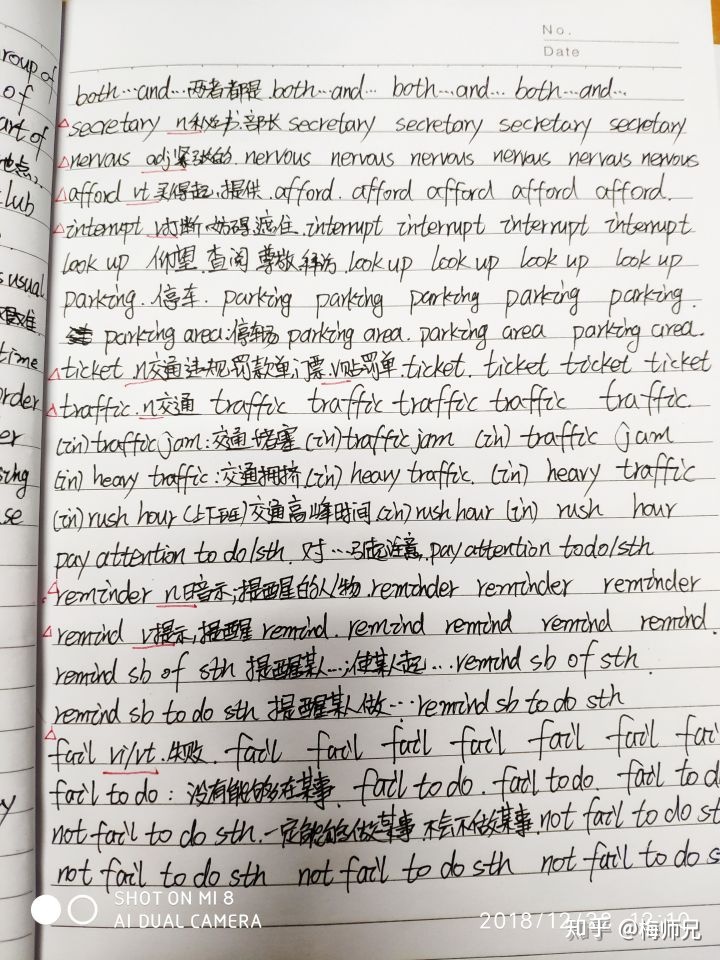 No.
Date
roup of
of
art of
地点
lub
s usual
time
order
er
sing
se
y
both…and…两者都是.both…and… both…and… both…and…
△secretary n秘书;部长 secretary secretary secretary secretary
△nervous adj紧张的 nervous nervous nervous nervous nervous nervous
△afford vt.买得起,提供.afford. afford afford afford afford.
△interrupt v打断 妨碍 遮住.interrupt interrupt interrupt interrupt
look up 仰望.查阅 尊敬 拜访.look up look up look up look up
parking.停车. parking parking parking parking parking.
parking area:停车场 parking area. parking area parking area.
△ticket n交通违规罚款单;门票.v贴罚单.ticket. ticket ticket ticket
△traffic.n交通 traffic traffic traffic traffic traffic.
(in)traffic jam:交通堵塞(in)traffic jam (in) traffic jam
(in) heavy traffic:交通拥挤.(in) heavy traffic. (in) heavy traffic
(in)rush hour(上下班)交通高峰时间.(in)rush hour (in) rush hour
pay attention to do/sth. 对…引起注意.pay attention to do/sth
△reminder n.暗示;提醒的人/物.reminder reminder reminder
△remind v提示,提醒 remind. remind remind remind remind.
remind sb of sth 提醒某人…;使某人想起…remind sb of sth.
remind sb to do sth 提醒某人做…remind sb to do sth
△fail vi/vt.失败. fail fail fail fail fail fail fai
fail to do:没有能够在某事. fail to do. fail to do. fail to d
not fail to do sth.一定能够做某事.不会不做某事.not fail to do st
not fail to do sth not fail to do sth not fail to do s
SHOT ON MI 8
AI DUAL CAMERA
知乎 @梅师兄